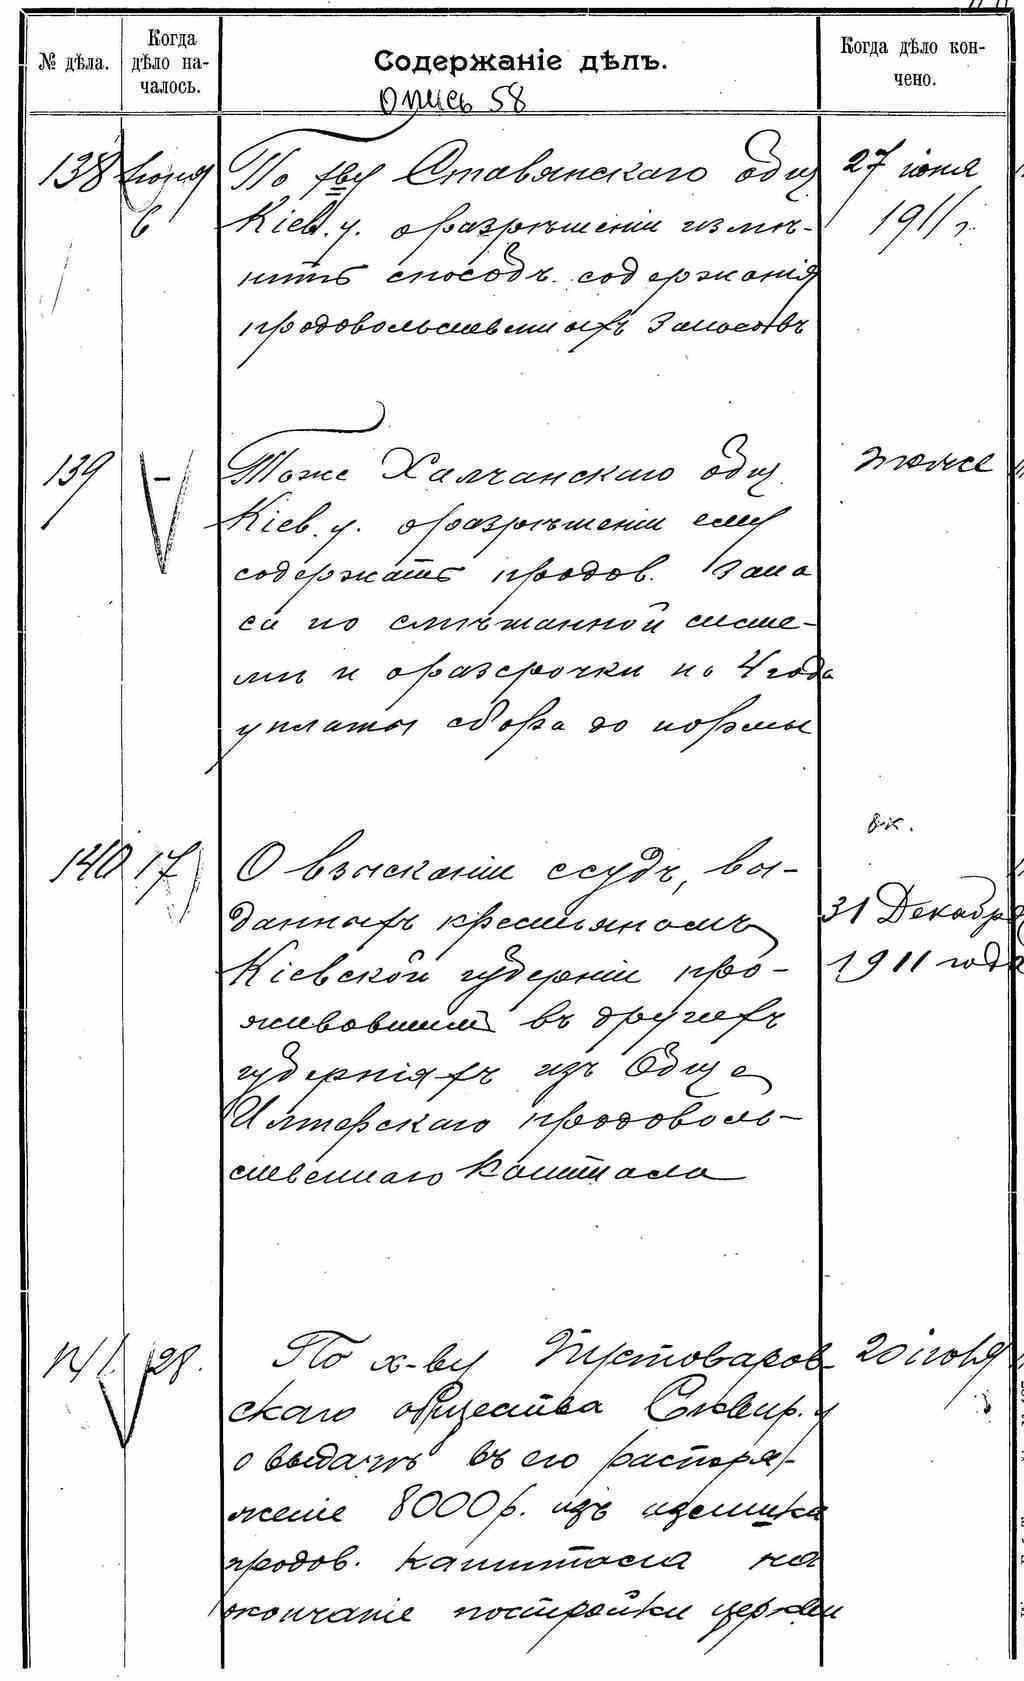 № дѣла.
Когда дѣло на-
чалось.
Содержаніе дѣлъ.
Когда дѣло кон-
чено.
Опись 58
138 Іюня 6
По хву Ставянскаго общ
Кіев. у. о разрѣшеніи измѣ-
нить способъ содержанія
продовольственныхъ запасовъ
27 іюня
1911 г.
139 –
Тоже Халчанскаго общ.
Кіев. у. о разрѣшеніи ему
содержать продов. запа
сы по смѣшанной систе-
мѣ и о разсрочки на 4 года
уплаты сбора до нормы
тоже
140 17
О взысканіи ссудъ, вы-
данныхъ крестьяномъ
Кіевской губерніи про-
живовшимъ въ другихъ
губерніяхъ изъ Обще
Имперскаго продоволь-
ственнаго капитала
31 Декабря
1911 года
141. 28.
По х-ву Тустоваров-
скаго общества Сквир. у
о выдачѣ въ его распоря-
женіе 8000 р. изъ излишка
продов. капитала на
окончаніе постройки церкви
20 іюня